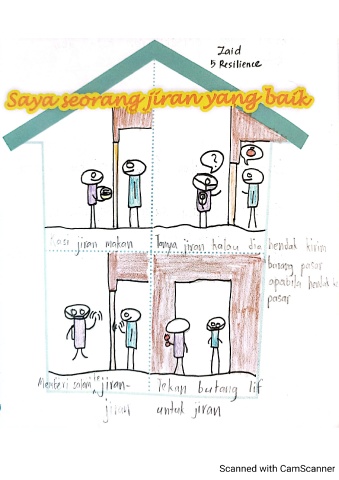 Zaid
5 Resilience
Saya seorang jiran yang baik
Kasi jiran makan
Tanya jiran kalau dia hendak kirim
barang pasar
apabila hendak ke
pasar
Memberi salam ke jiran-
jiran
Tekan butang lif
untuk jiran
Scanned with CamScanner